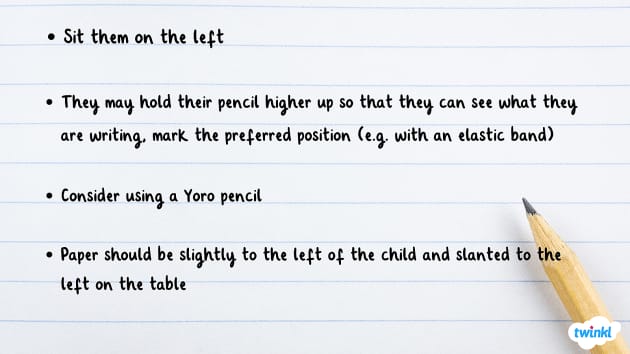 • Sit them on the left
• They may hold their pencil higher up so that they can see what they
are writing, mark the preferred position (e.g. with an elastic band)
• Consider using a Yoro pencil
• Paper should be slightly to the left of the child and slanted to the
left on the table
twinkl